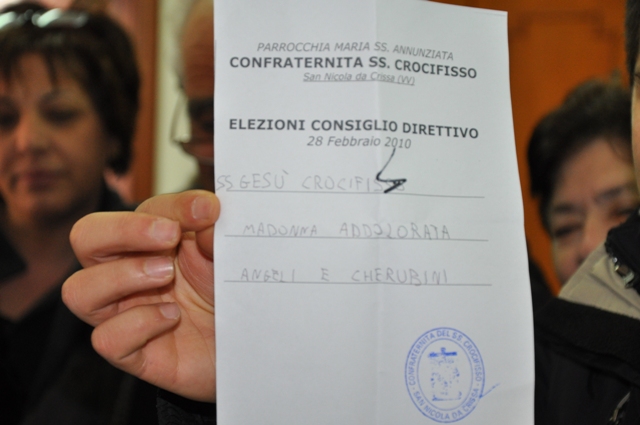 PARROCCHIA MARIA SS. ANNUNZIATA
CONFRATERNITA SS. CROCIFISSO
San Nicola da Crissa (VV)
ELEZIONI CONSIGLIO DIRETTIVO
28 Febbraio 2010
SS GESÙ CROCIFISSO
MADONNA ADDOLORATA
ANGELI E CHERUBINI
CONFRATERNITA DEL SS. CROCIFISSO
SAN NICOLA DA CRISSA